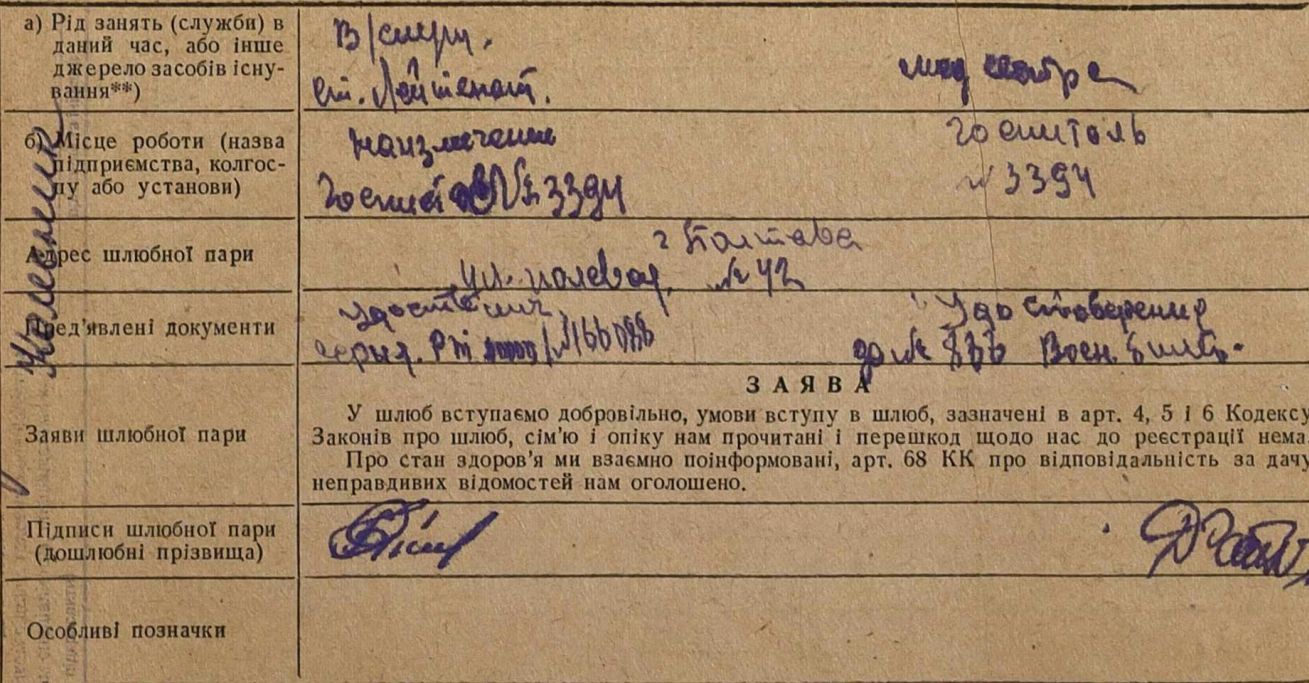 а) Рід занять (служби) в
даний час, або інше
джерело засобів існу-
вання**)
В/служ.
ст. Лейтенант.
мед сестра
б) Місце роботи (назва
підприємства, колгос-
пу або установи)
Начмедчасти
№ 3394
Госпиталь
№ 3394
Адрес шлюбної пари
г Полтава
ул. Полевая № 42
Пред'явлені документи
серия. РТ
Удостоверение
до № Воен. билет.
Заяви шлюбної пари
ЗАЯВА
У шлюб вступаємо добровільно, умови вступу в шлюб, зазначені в арт. 4, 5 і 6 Кодексу
Законів про шлюб, сім'ю і опіку нам прочитані і перешкод щодо нас до реєстрації нема.
Про стан здоров'я ми взаємно поінформовані, арт. 68 КК про відповідальність за дачу
неправдивих відомостей нам оголошено.
Підписи шлюбної пари
(дошлюбні прізвища)
Особливі позначки